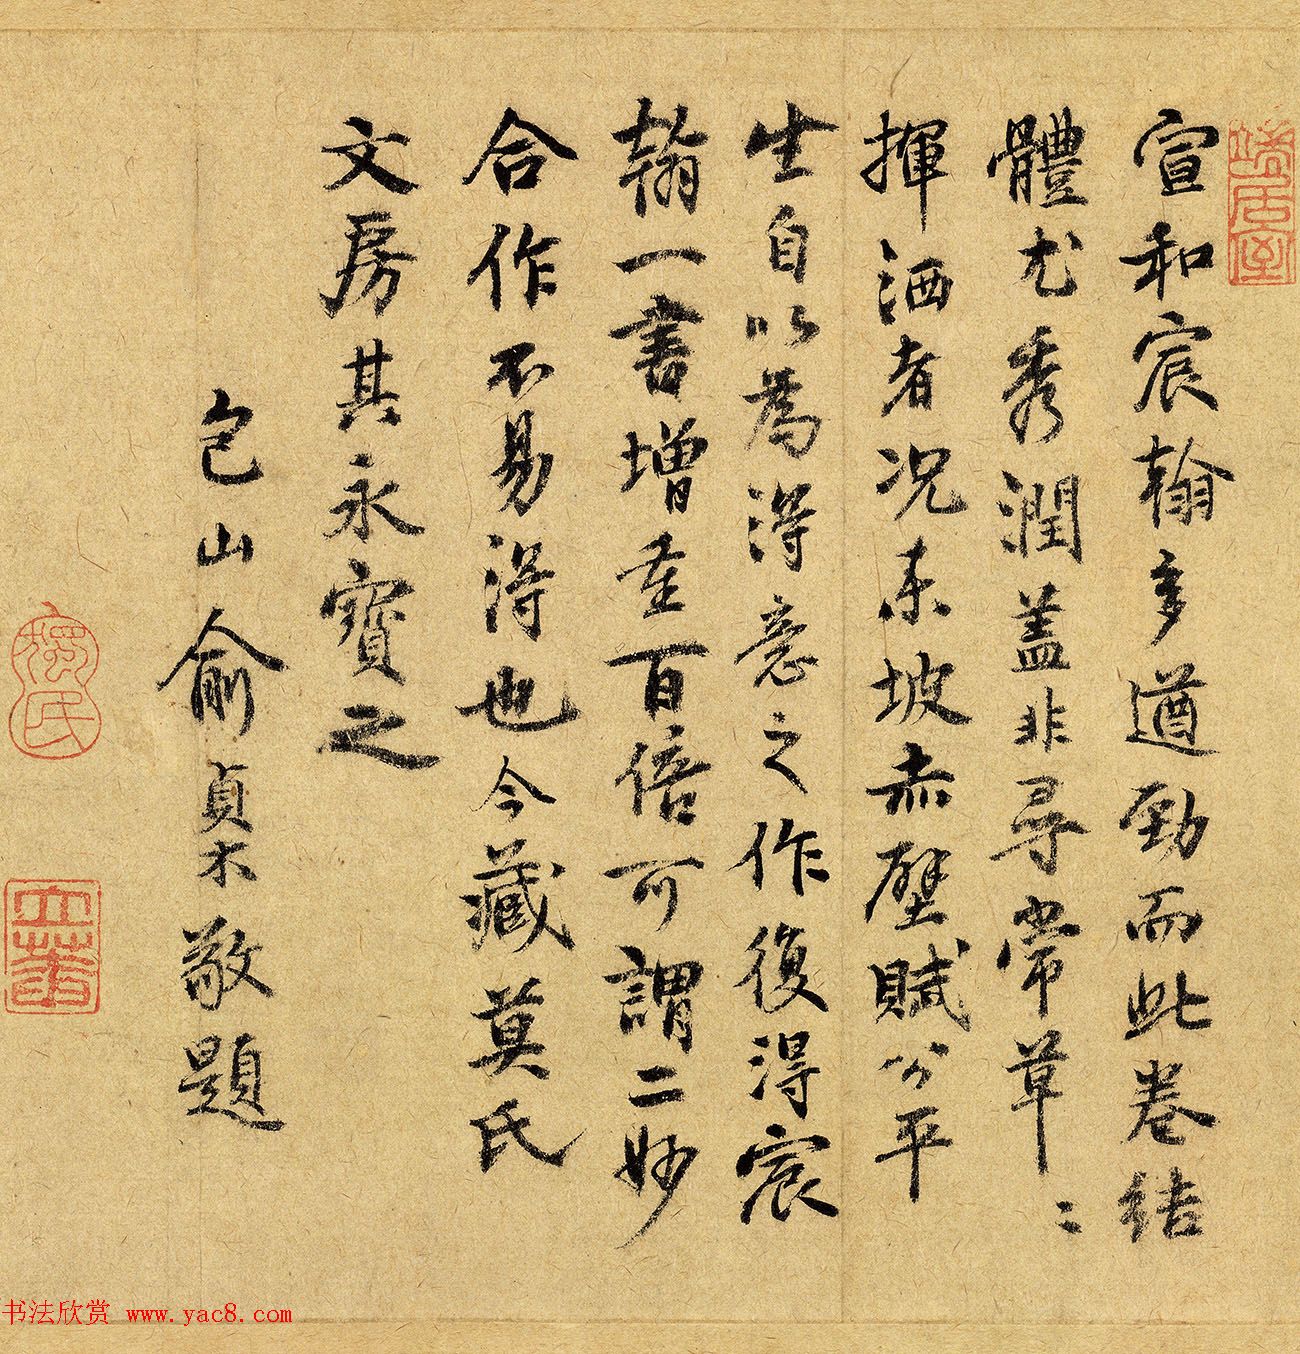 宣和宸翰多遒勁而此卷結
體尤秀潤盖非尋常草〻
揮洒者况东坡赤壁賦公平
生自以為得意之作復得宸
翰一書增重百倍可謂二妙
合作不易得也今藏莫氏
文房其永寶之
包山俞貞木敬題
书法欣赏 www.yac8.com